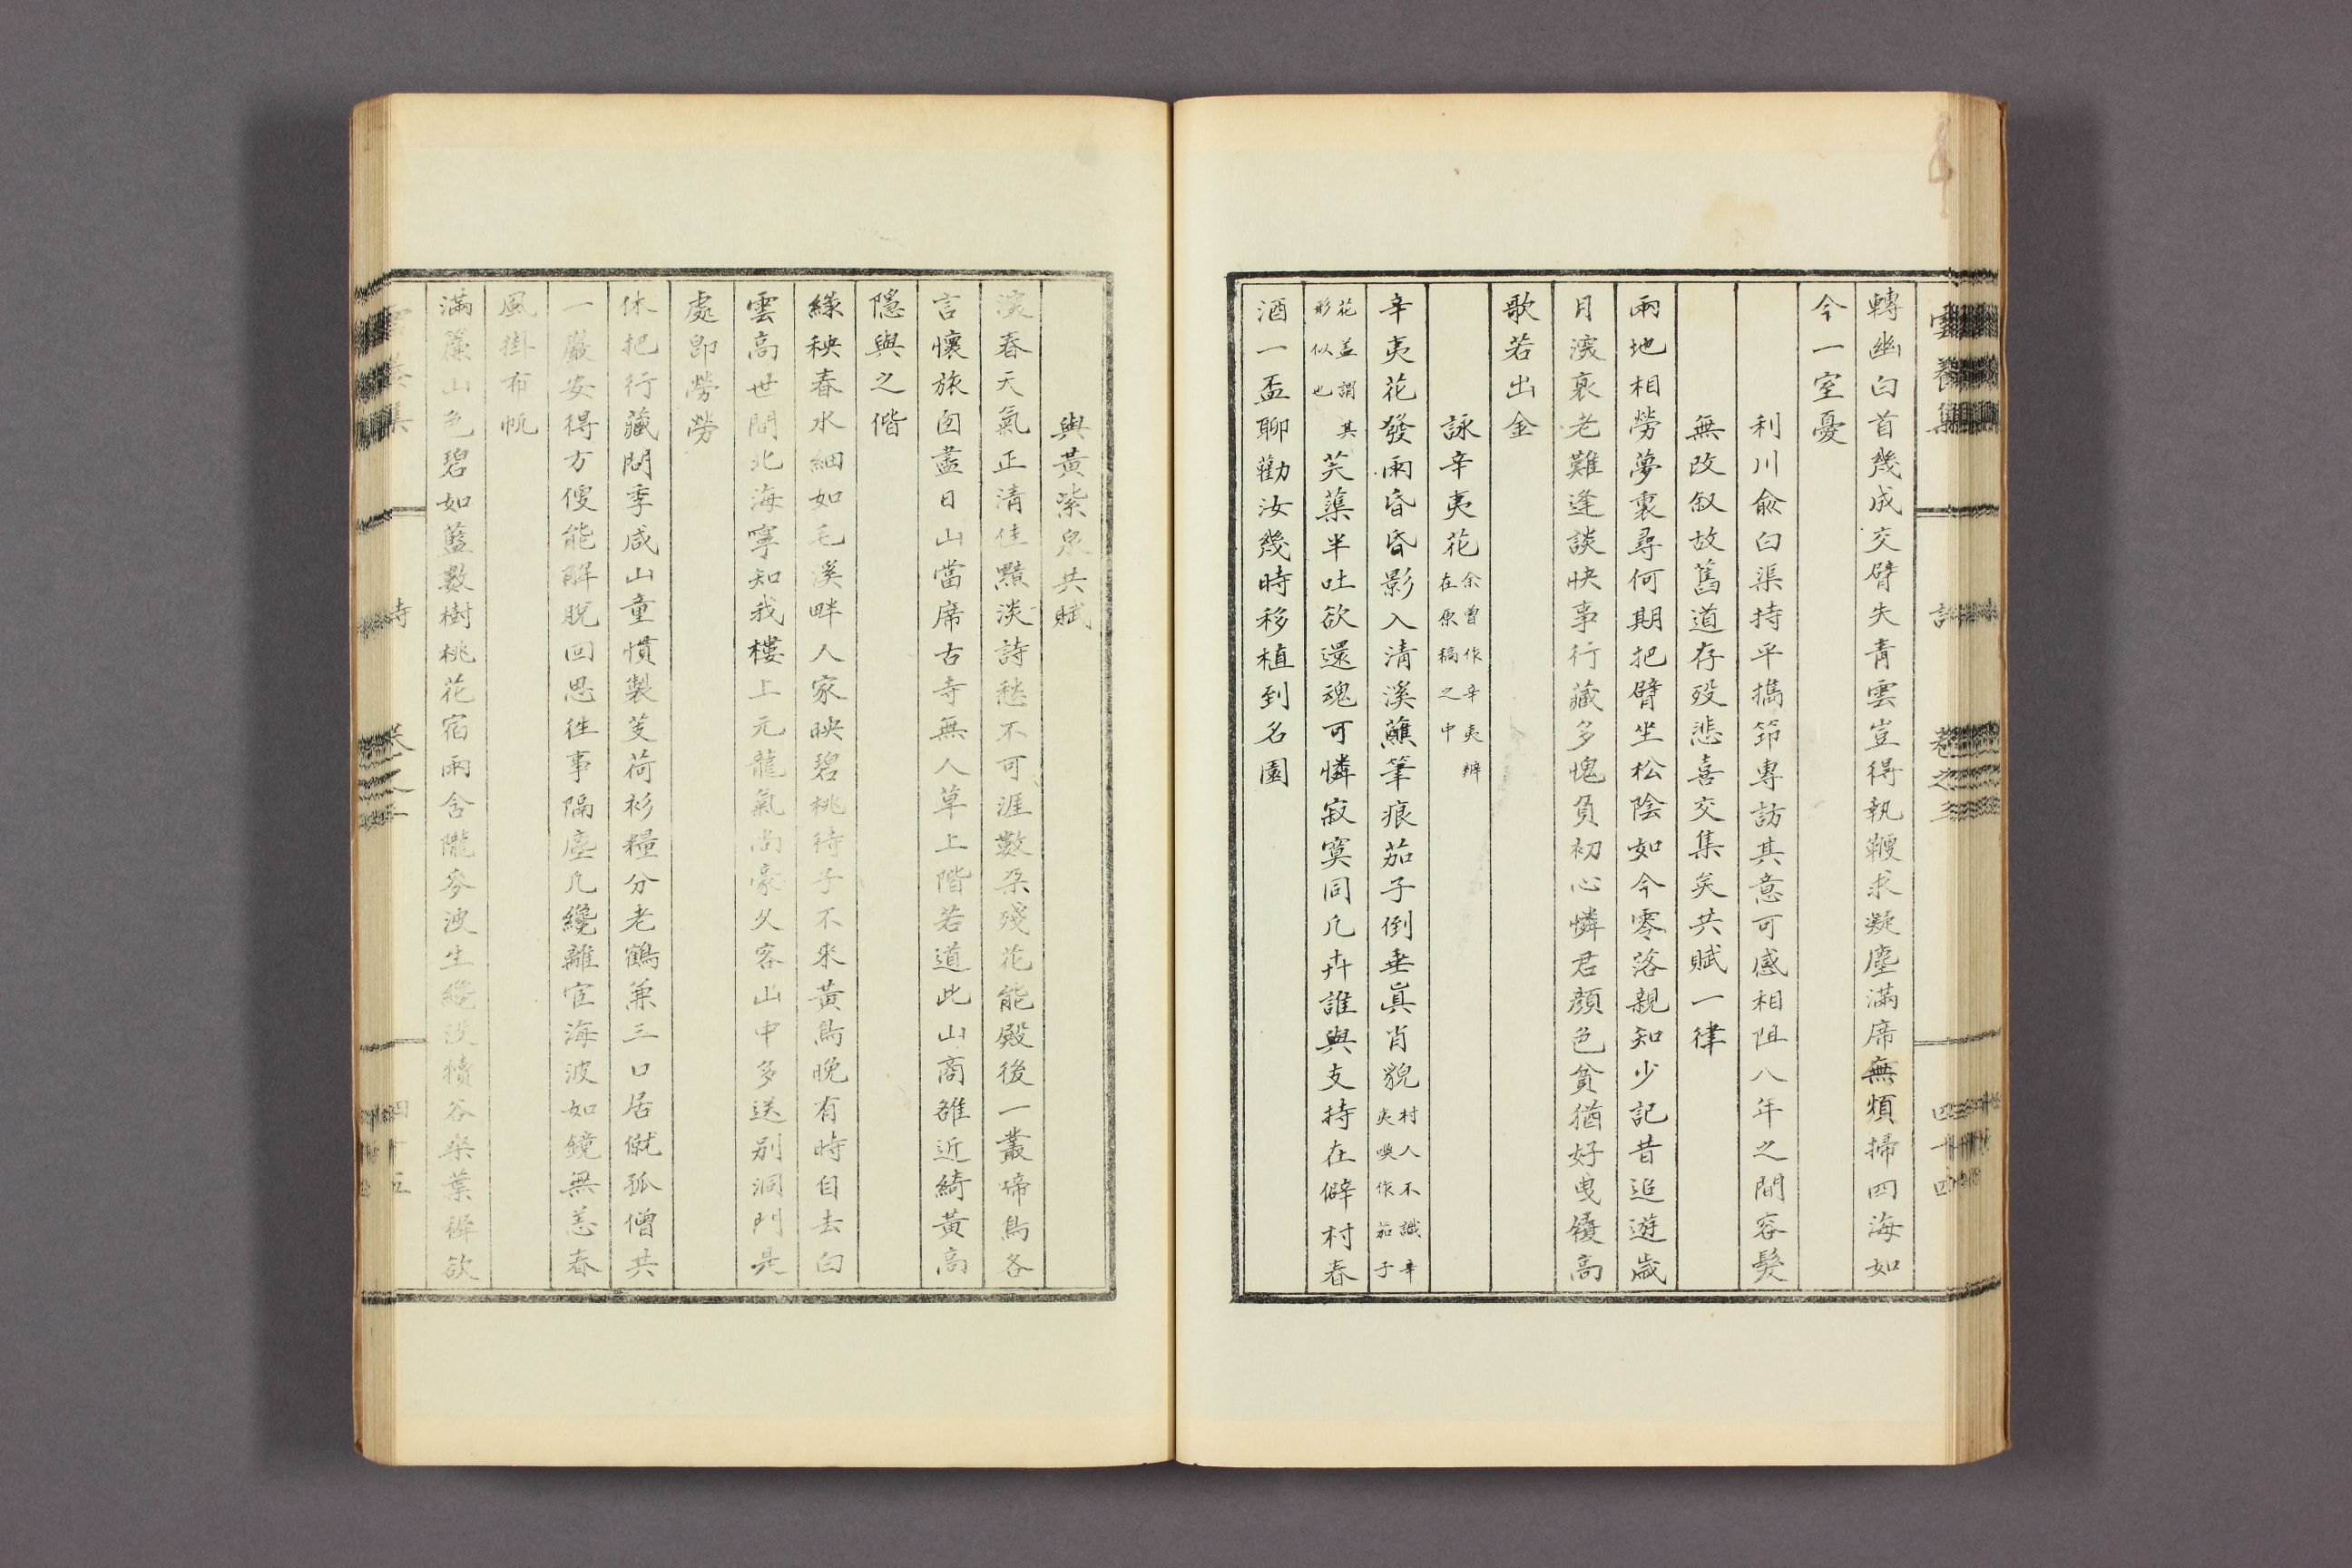 雲養集 詩 卷之三 四十四
轉幽白首幾成交臂失青雲豈得執鞭求凝塵滿席無煩掃四海如
今一室憂
利川兪白渠持平擕節專訪其意可感相阻八年之間容髮
無改叙故舊道存歿悲喜交集矣共賦一律
兩地相勞夢裏尋何期把臂坐松陰如今零落親知少記昔追遊歲
月深衰老難逢談快事行藏多愧負初心憐君顔色貧猶好曳履高
歌若出金
詠辛夷花余曾作辛夷辨在原稿之中
辛夷花發雨昏昏影入淸溪蘸筆痕茄子倒垂眞肖貌村人不識辛夷喚作茄子
花盖謂其形似也芙蕖半吐欲還魂可憐寂寞同凡卉誰與支持在僻村春
酒一盃聊勸汝幾時移植到名園
與黃紫泉共賦
淡春天氣正淸佳黯淡詩愁不可涯數朶殘花能殿後一叢啼鳥各
言懷旅囱盡日山當席古寺無人草上階若道此山商雒近綺黃高
隱與之偕
綠秧春水細如毛溪畔人家映碧桃待子不來黃鳥晚有時自去白
雲高世間北海寧知我樓上元龍氣尙豪久客山中多送别洞門是
處卽勞勞
休把行藏問季咸山童慣製芰荷衫糧分老鶴兼三口居僦孤僧共
一巖安得方便能解脫回思往事隔塵凡纔離宦海波如鏡無恙春
風掛布帆
滿簾山色碧如藍數樹桃花宿雨含隴麥波生纔沒犢谷桑葉穉欲
雲養集 詩 卷之三 四十五